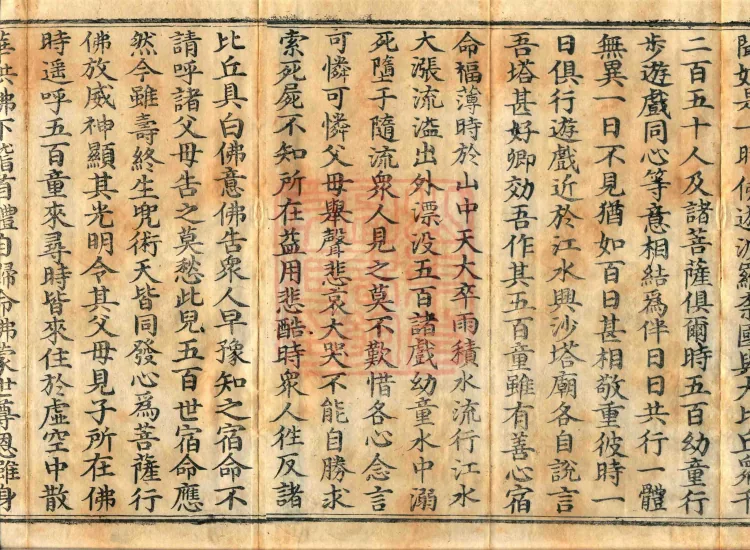 如是一時佛遊波羅奈國與大比丘衆千
二百五十人及諸菩薩俱爾時五百幼童行
步遊戲同心等意相結爲伴日日共行一體
無異一日不見猶如百日甚相敬重彼時一
日俱行遊戲近於江水興沙塔廟各自說言
吾塔甚好卿効吾作其五百童雖有善心宿
命福薄時於山中天大卒雨積水流行江水
大漲流溢出外漂没五百諸戲幼童水中溺
死墮于隨流衆人見之莫不歎惜各心念言
可憐可憐父母舉聲悲哀大哭不能自勝求
索死屍不知所在益用悲酷時衆人徃反諸
比丘具白佛意佛告衆人早豫知之宿命不
請呼諸父母告之莫愁此兒五百世宿命應
然今雖壽終生兜術天皆同發心爲菩薩行
佛放威神顯其光明令其父母見子所在佛
時遥呼五百童來尋時皆來住於虛空中散
華供佛下稽首禮自歸命佛蒙世尊恩雖身